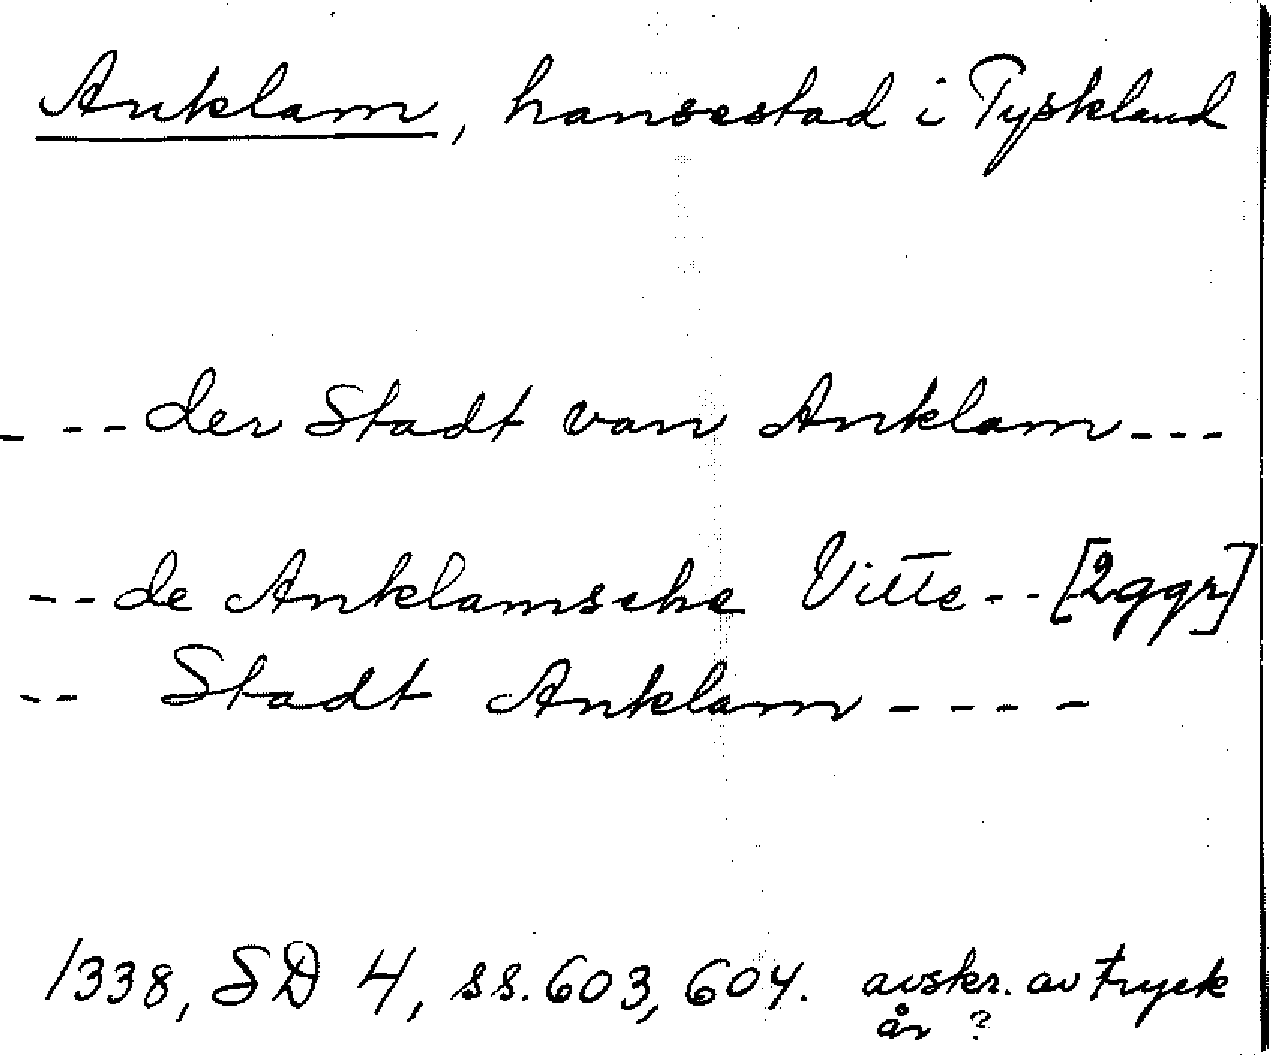 Anklam, hansestad i Tyskland
- - - der Stadt van Anklam - - -
- - de Anklamsche Vitte - - [2ggr]
- - Stadt Anklam - - - -
1338, SD 4, ss. 603, 604. avskr. av tryck
år ?